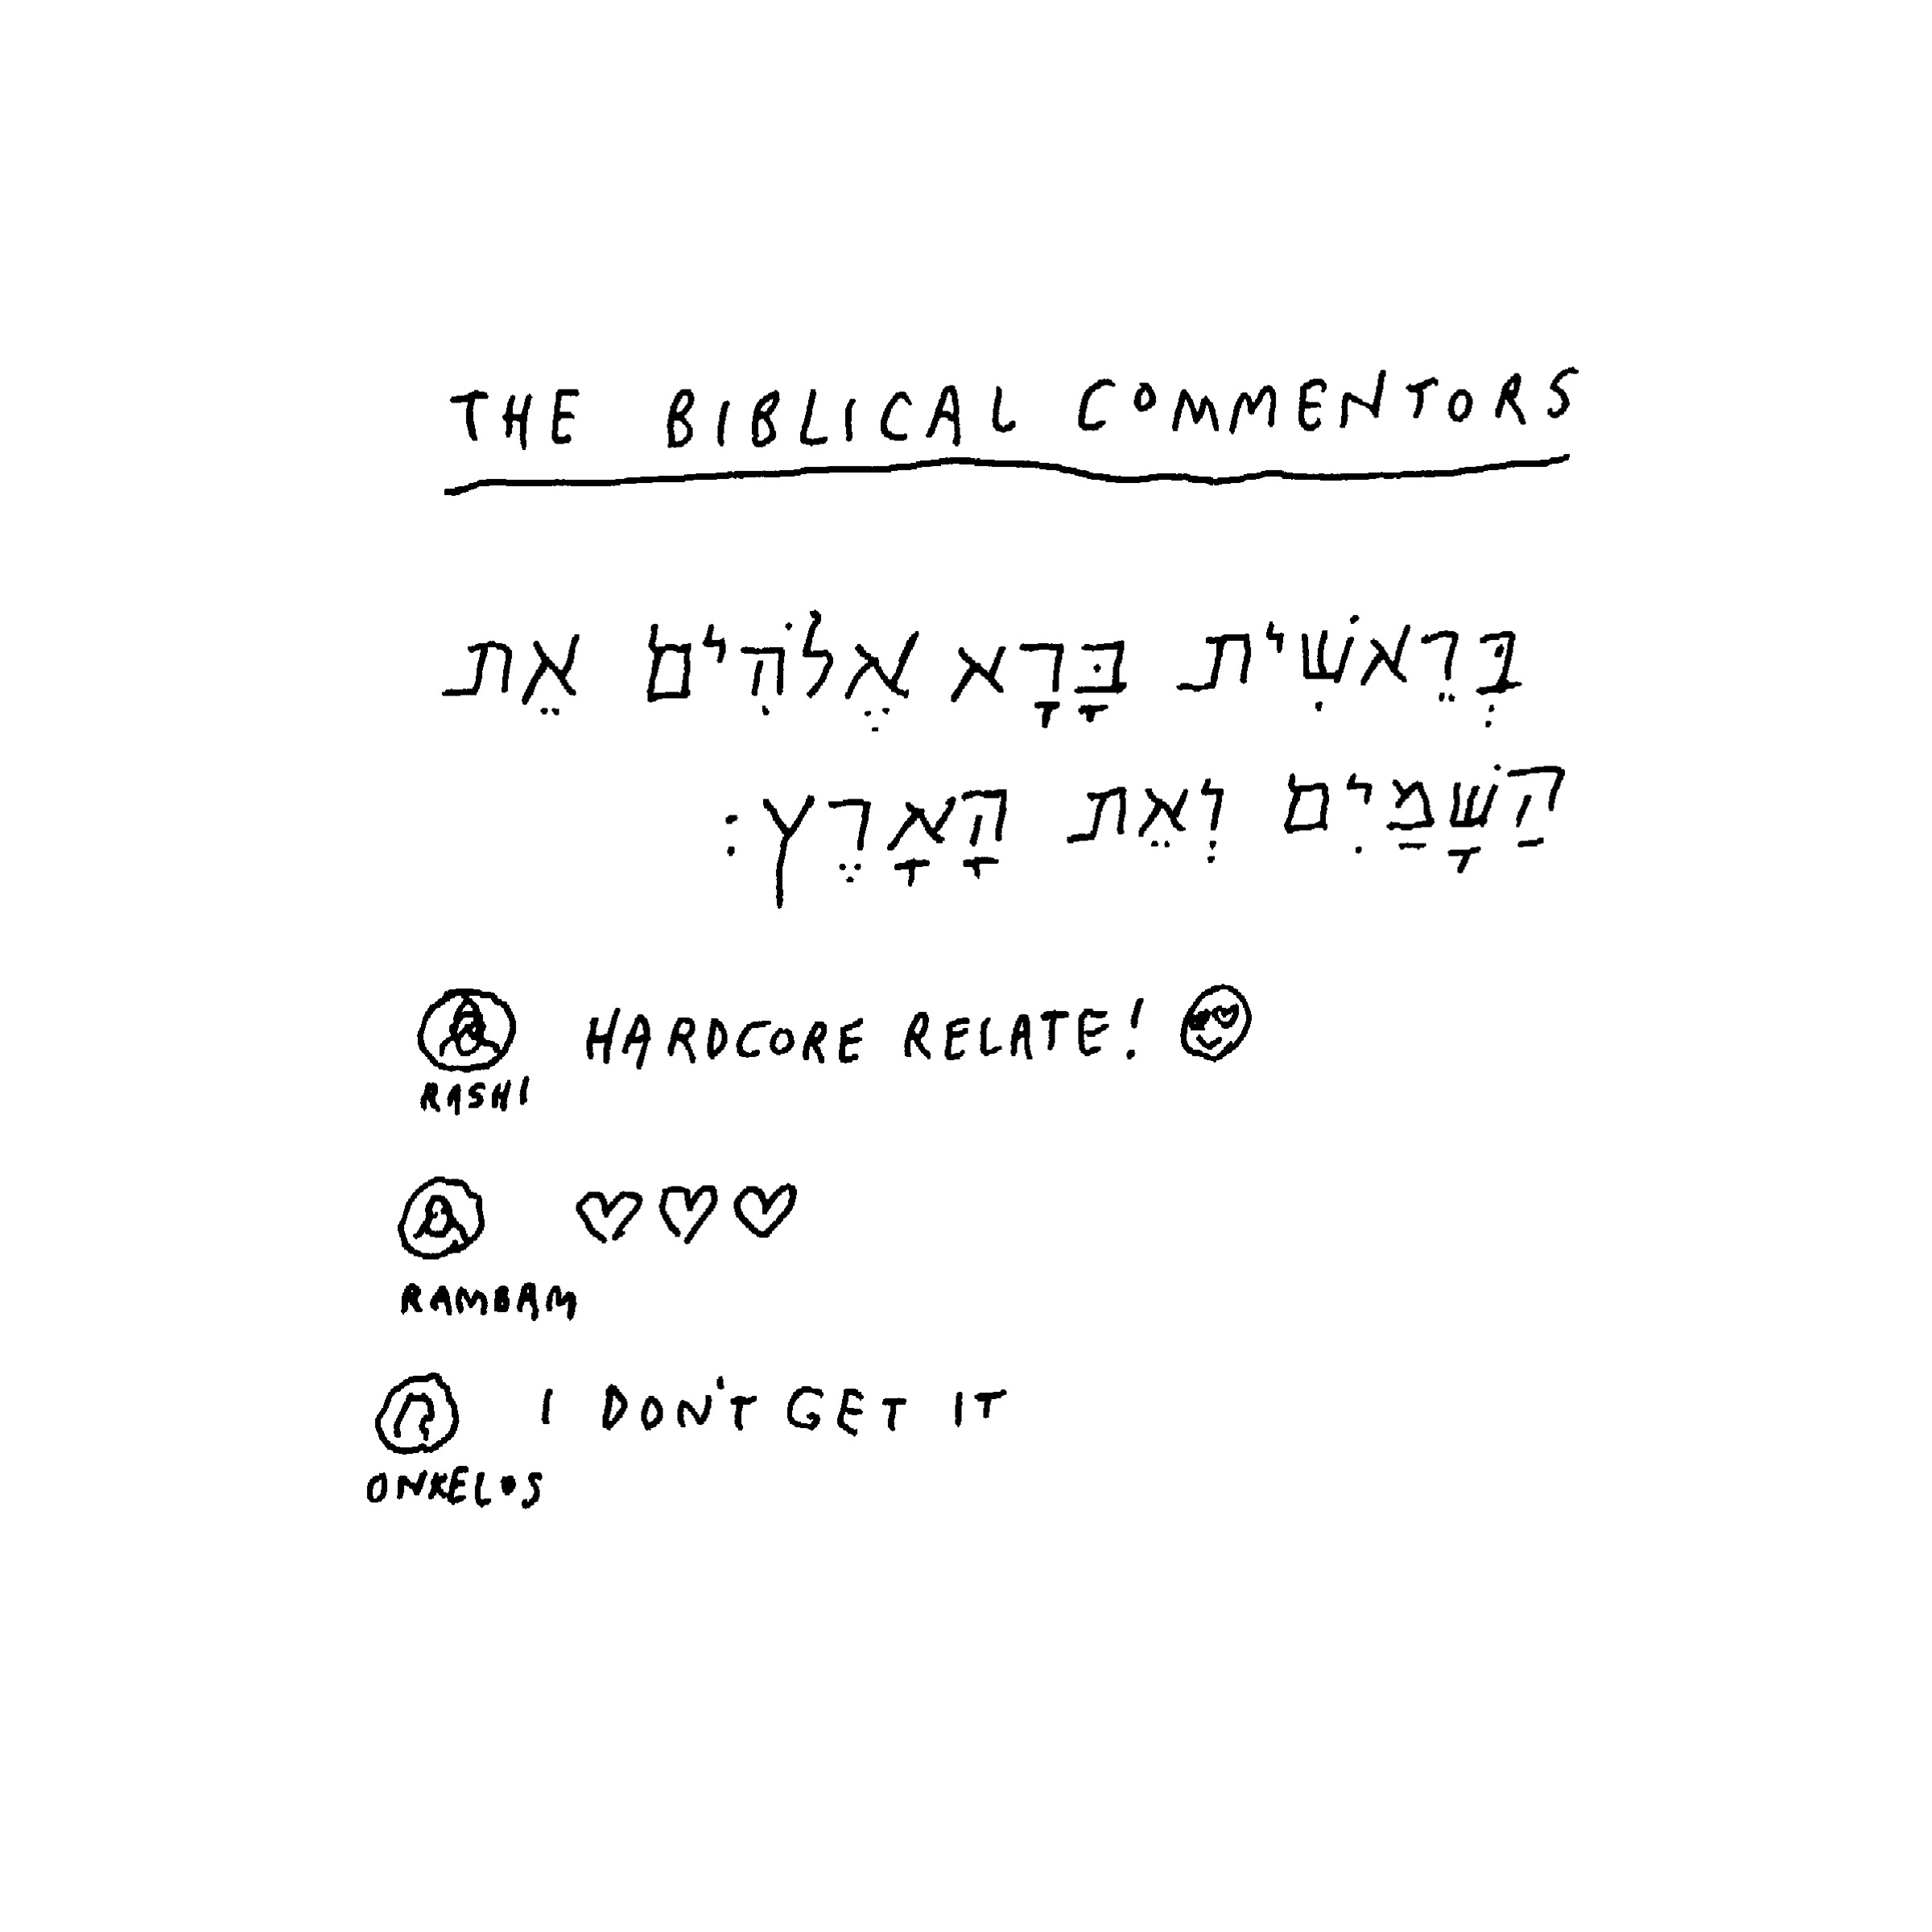 THE BIBLICAL COMMENTORS
בְּרֵאשִׁית בָּרָא אֱלֹהִים אֵת
הַשָּׁמַיִם וְאֵת הָאָרֶץ:
HARDCORE RELATE!
RASHI
♡♡♡
RAMBAM
I DON'T GET IT
ONKELOS